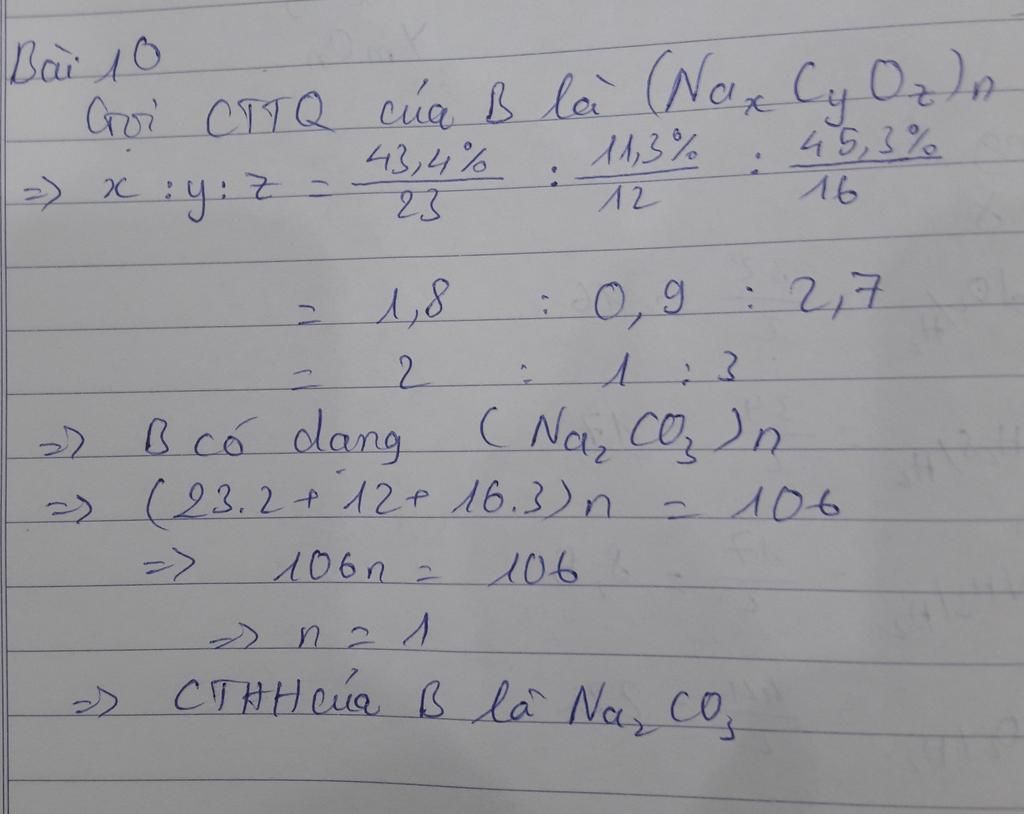 Bài 10
Gọi CTTQ của B là (NaxCyOz)n
=> x : y : z = 43,4%/23 : 11,3%/12 : 45,3%/16
= 1,8 : 0,9 : 2,7
= 2 : 1 : 3
=> B có dạng (Na2CO3)n
=> (23.2 + 12 + 16.3)n = 106
=> 106n = 106
=> n = 1
=> CTHH của B là Na2CO3